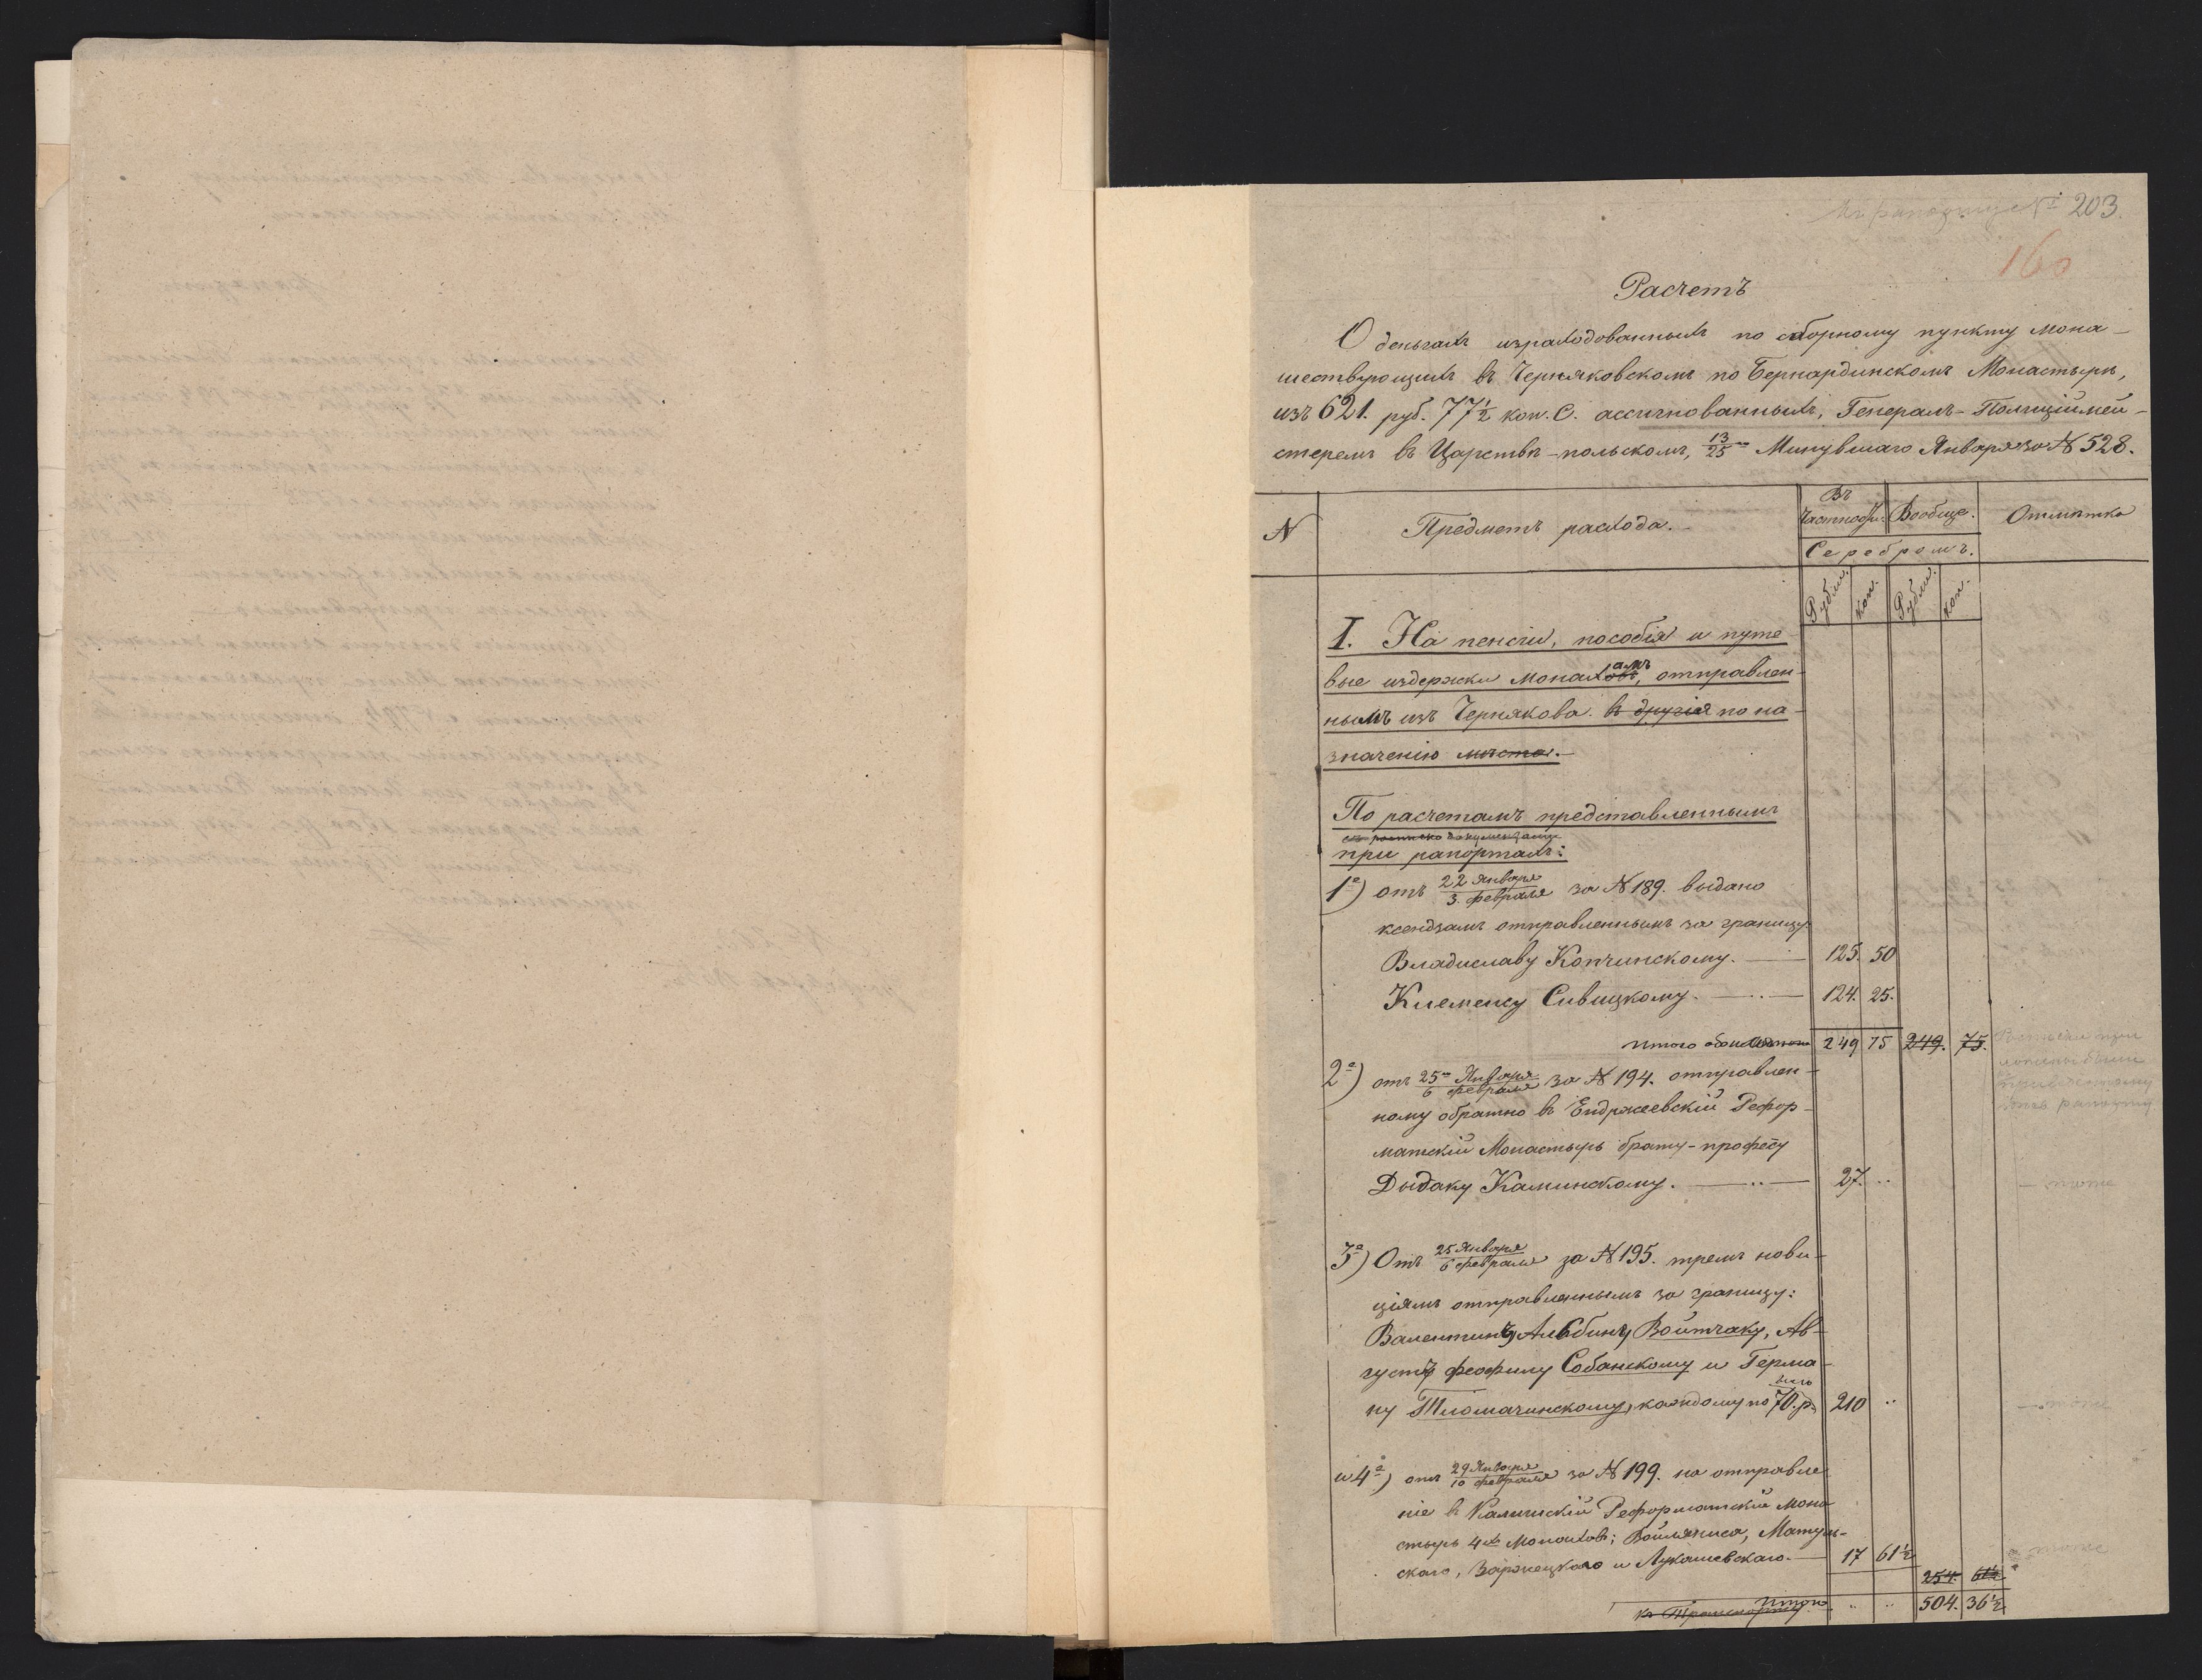 Къ рапорту № 203.
160
Расчетъ
О деньгахъ израходованныхъ по сборному пункту мона-
шествующихъ въ Черняковскомъ по Бернардинскомъ Монастырѣ,
изъ 621. руб. 77½ коп. С. ассигнованныхъ, Генералъ-Полиціймей-
стеромъ въ Царствѣ-польскомъ, 13/25го Минувшаго Января за № 528.
N
Предметъ расхода.
Въ частности.
Вообще.
Отмѣтка
Серебромъ.
Рубли. коп. Рубли. коп.
I. На пенсіи, пособія и путе
вые издержки монаховъ амъ, отправлен-
нымъ изъ Чернякова. въ другія по на-
значенію мѣста.
По расчетамъ представленнымъ
документами
при рапортахъ:
1е) отъ 22 Января/3 февраля за № 189. выдано
ксендзамъ отправленнымъ за границу
Владиславу Копчинскому. 125. 50
Клеменсу Сивицкому. 124. 25.
Итого 249 75 249. 75.
2е) отъ 25го Января/6 февраля за № 194. отправлен-
ному обратно въ Енджеевскій Рефор-
матскій Монастырь брату-професу
Дыдаку Каминскому. 27. ..
тоже
3е) Отъ 25 Января/6 февраля за № 195. тремъ нови-
ціямъ отправленнымъ за границу:
Валентину Альбину Войтчаку, Ав-
густу Феофилу Собанскому и Герма-
ну Тломачинскому, каждому по 70. р. 210 ..
тоже
и 4е) отъ 29 Января/10 февраля за № 199. на отправле
ніе въ Калишскій Реформатскій Мона
стырь 4хъ Монаховъ; Матуль-
скаго, Заржецкаго и Лукашевскаго. 17 61½
тоже
254. 61½
къ Транспорту. Итого .. .. 504. 36½